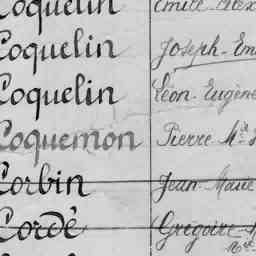 Coquelin
Coquelin Joseph-Em
Coquelin Léon-Eugène
Coquemon Pierre-Mie
Corbin Jean-Marie
Cordé Grégoire